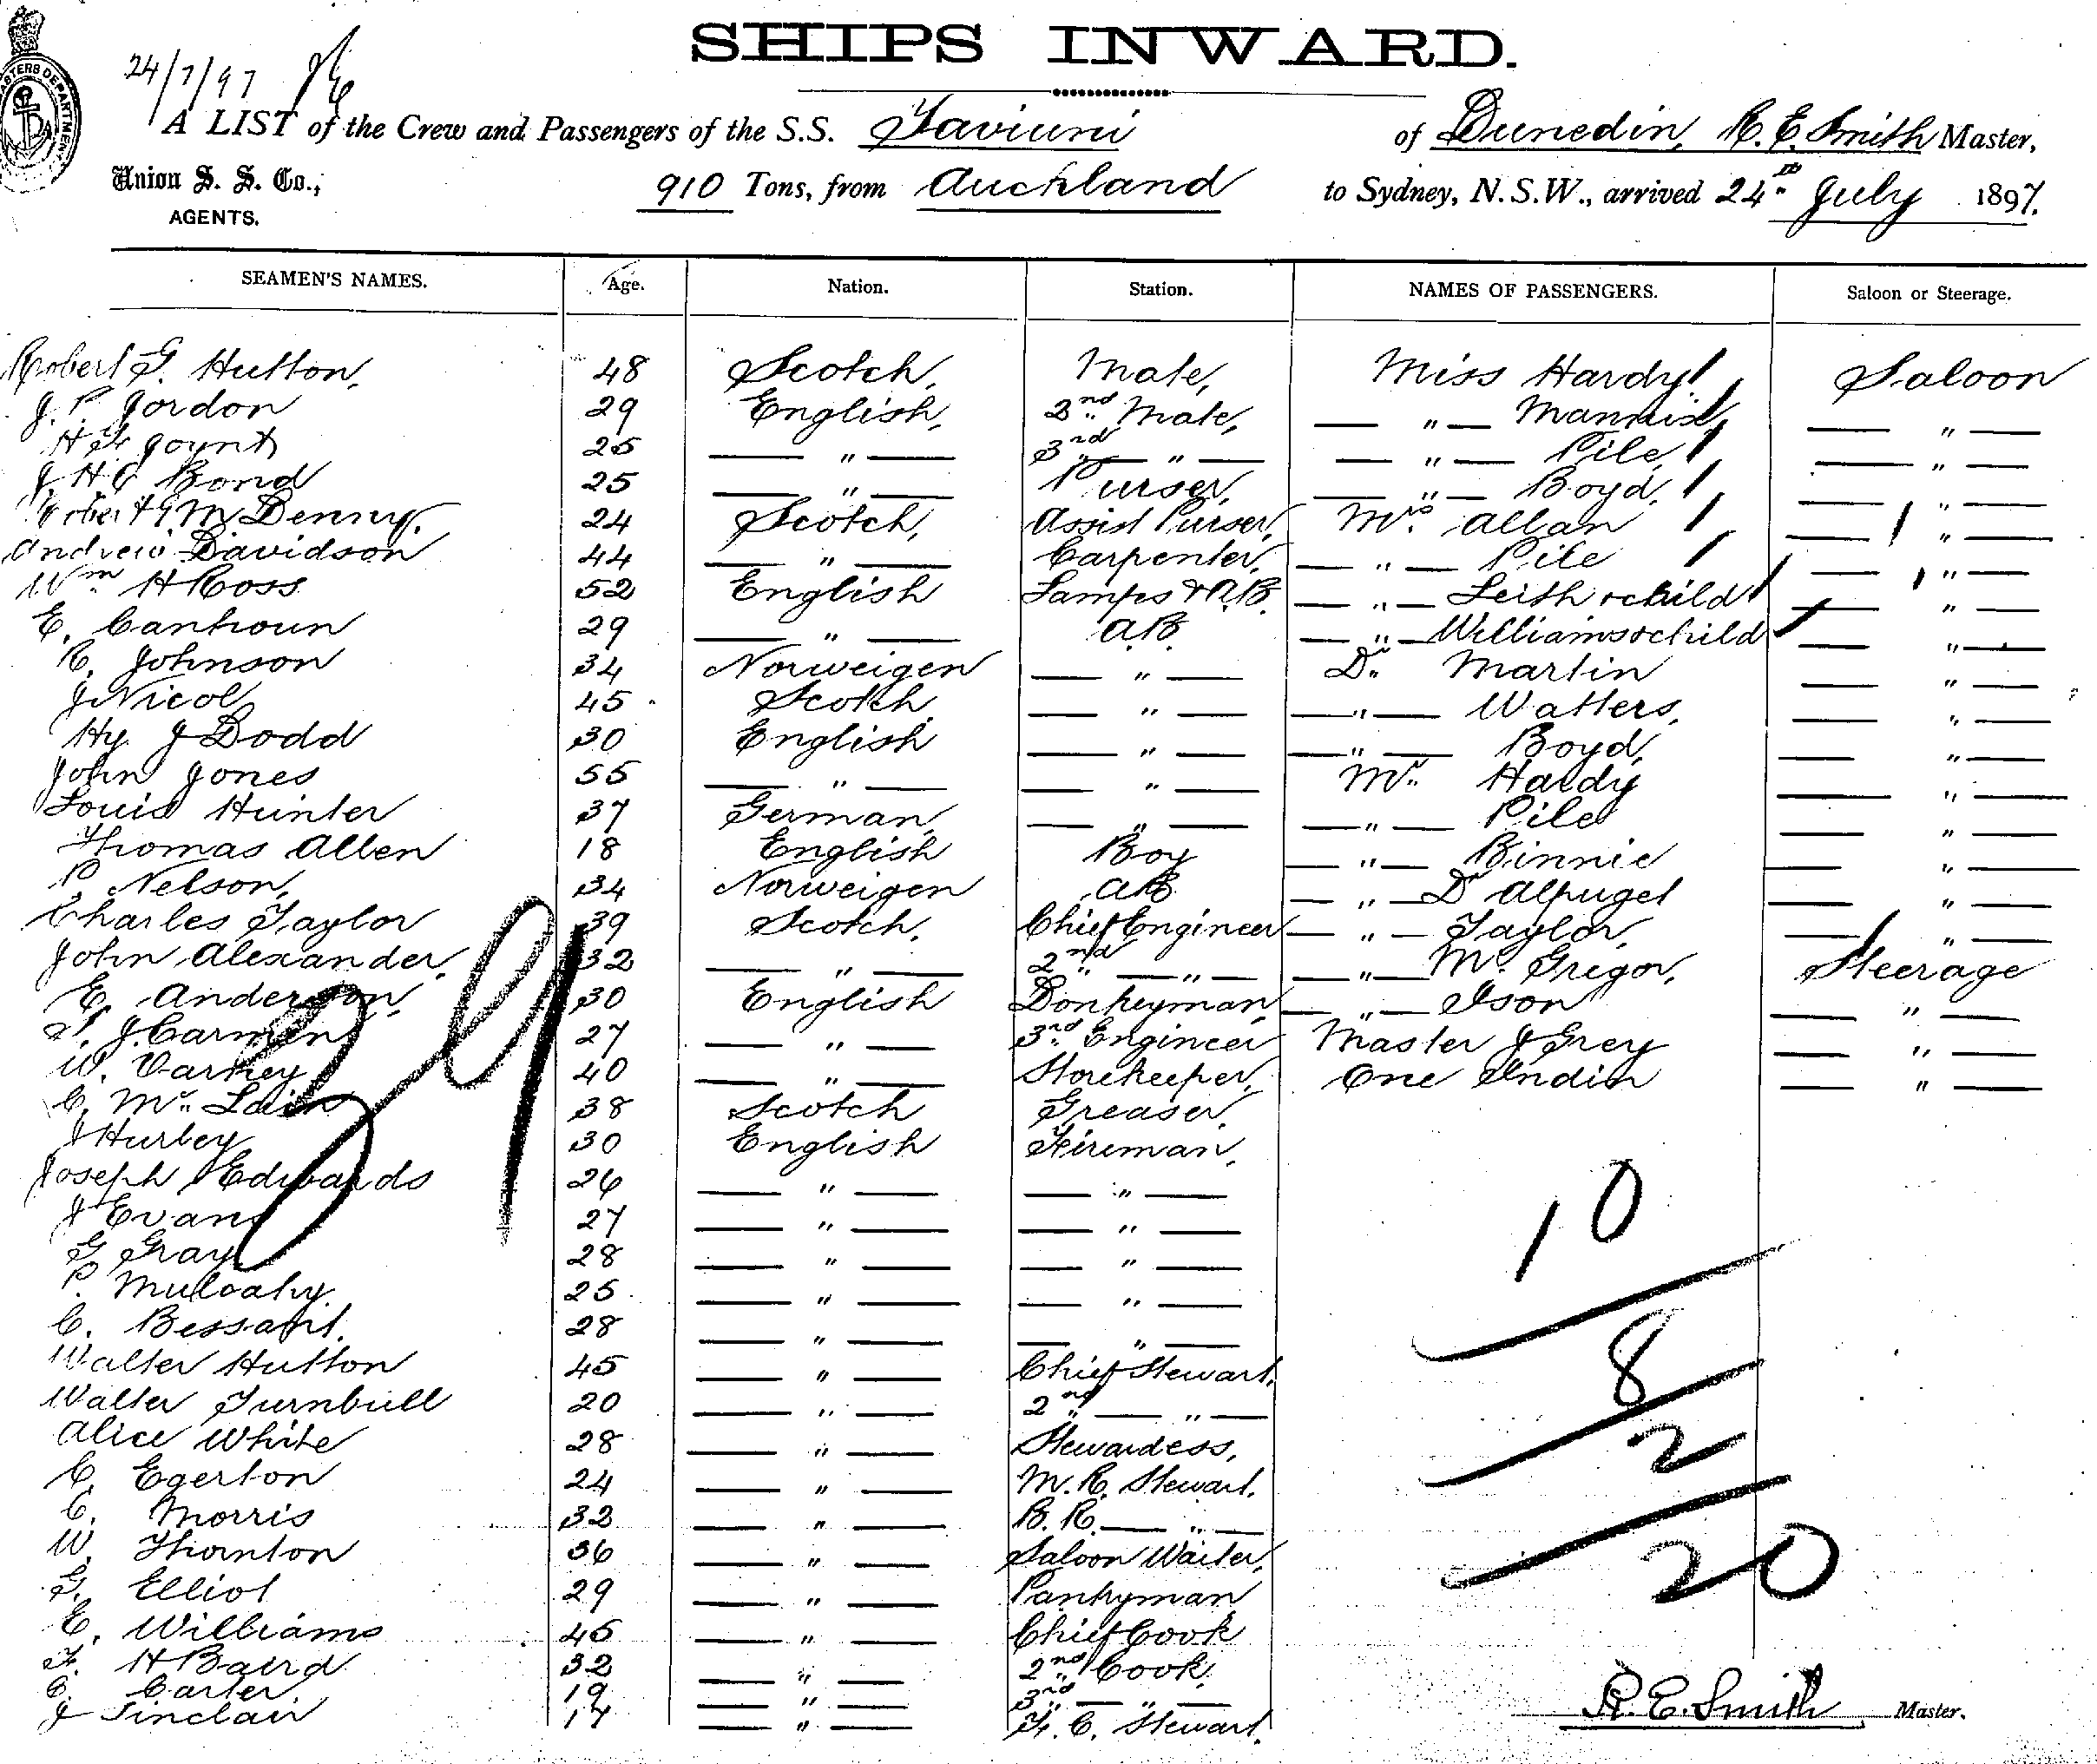 SHIPS INWARD.
24/7/97
A LIST of the Crew and Passengers of the S.S. Taviuni of Dunedin, R. E. Smith Master,
Union S. S. Co., AGENTS.
910 Tons, from Auckland to Sydney, N.S.W., arrived 24th July 1897.
SEAMEN'S NAMES. Age. Nation. Station. NAMES OF PASSENGERS. Saloon or Steerage.
Robert G. Hutton, 48 Scotch, Mate, Miss Hardy Saloon
J. P. Gordon 29 English, 2nd Mate, — " — Mannix, — " —
25 — " — 3rd — " — — " — Pile — " —
J H C Bond 25 — " — Purser, — " — Boyd, — " —
Robert G M Denny. 24 Scotch, Assist Purser, Mrs. Allan — " —
Andrew Davidson 44 — " — Carpenter, — " — Pile — " —
Wm. H Ross 52 English Lamps & A.B. — " — Leith & child — " —
E. Canhoun 29 — " — A.B. — " — Williams & child — " —
C. Johnson 34 Norweigen — " — Dr. Martin — " —
J Nicol 45 Scotch — " — — " — Watters, — " —
Hy J Dodd 30 English — " — — " — Boyd, — " —
John Jones 55 — " — — " — Mr. Hardy — " —
Louis Hunter 37 German, — " — — " — Pile — " —
Thomas Allen 18 English Boy — " — Binnie — " —
P. Nelson, 34 Norweigen AB — " — D'Alpuget — " —
Charles Taylor 39 Scotch, Chief Engineer — " — Taylor, — " —
John Alexander, 32 — " — 2nd — " — — " — McGregor, Steerage
E. Anderson, 30 English Donkeyman, — " — Ison — " —
T. J. Carmen 27 — " — 3rd Engineer Master J Grey — " —
W. Varney 40 — " — Storekeeper, One — " —
C. Mc. Lain 38 Scotch Greaser,
J Hurley 30 English Fireman,
Joseph Edwards 26 — " — — " —
J Evans 27 — " — — " —
G Gray 28 — " — — " —
P. Mulcahy. 25 — " — — " —
C. Bessant. 28 — " — — " —
Walter Hutton 45 — " — Chief Stewart.
Walter Turnbull 20 — " — 2nd — " —
Alice White 28 — " — Stewardess,
C. Egerton 24 — " — M. R. Stewart.
C. Morris 32 — " — B. R. — " —
W. Thornton 36 — " — Saloon Waiter,
G. Elliot 29 — " — Pantryman
E. Williams 45 — " — Chief Cook
F. H Baird 32 — " — 2nd Cook,
C. Carter. 19 — " — 3rd — " —
J Sinclair 17 — " — F. C. Stewart.
39
10
8
2
20
R. E. Smith Master.